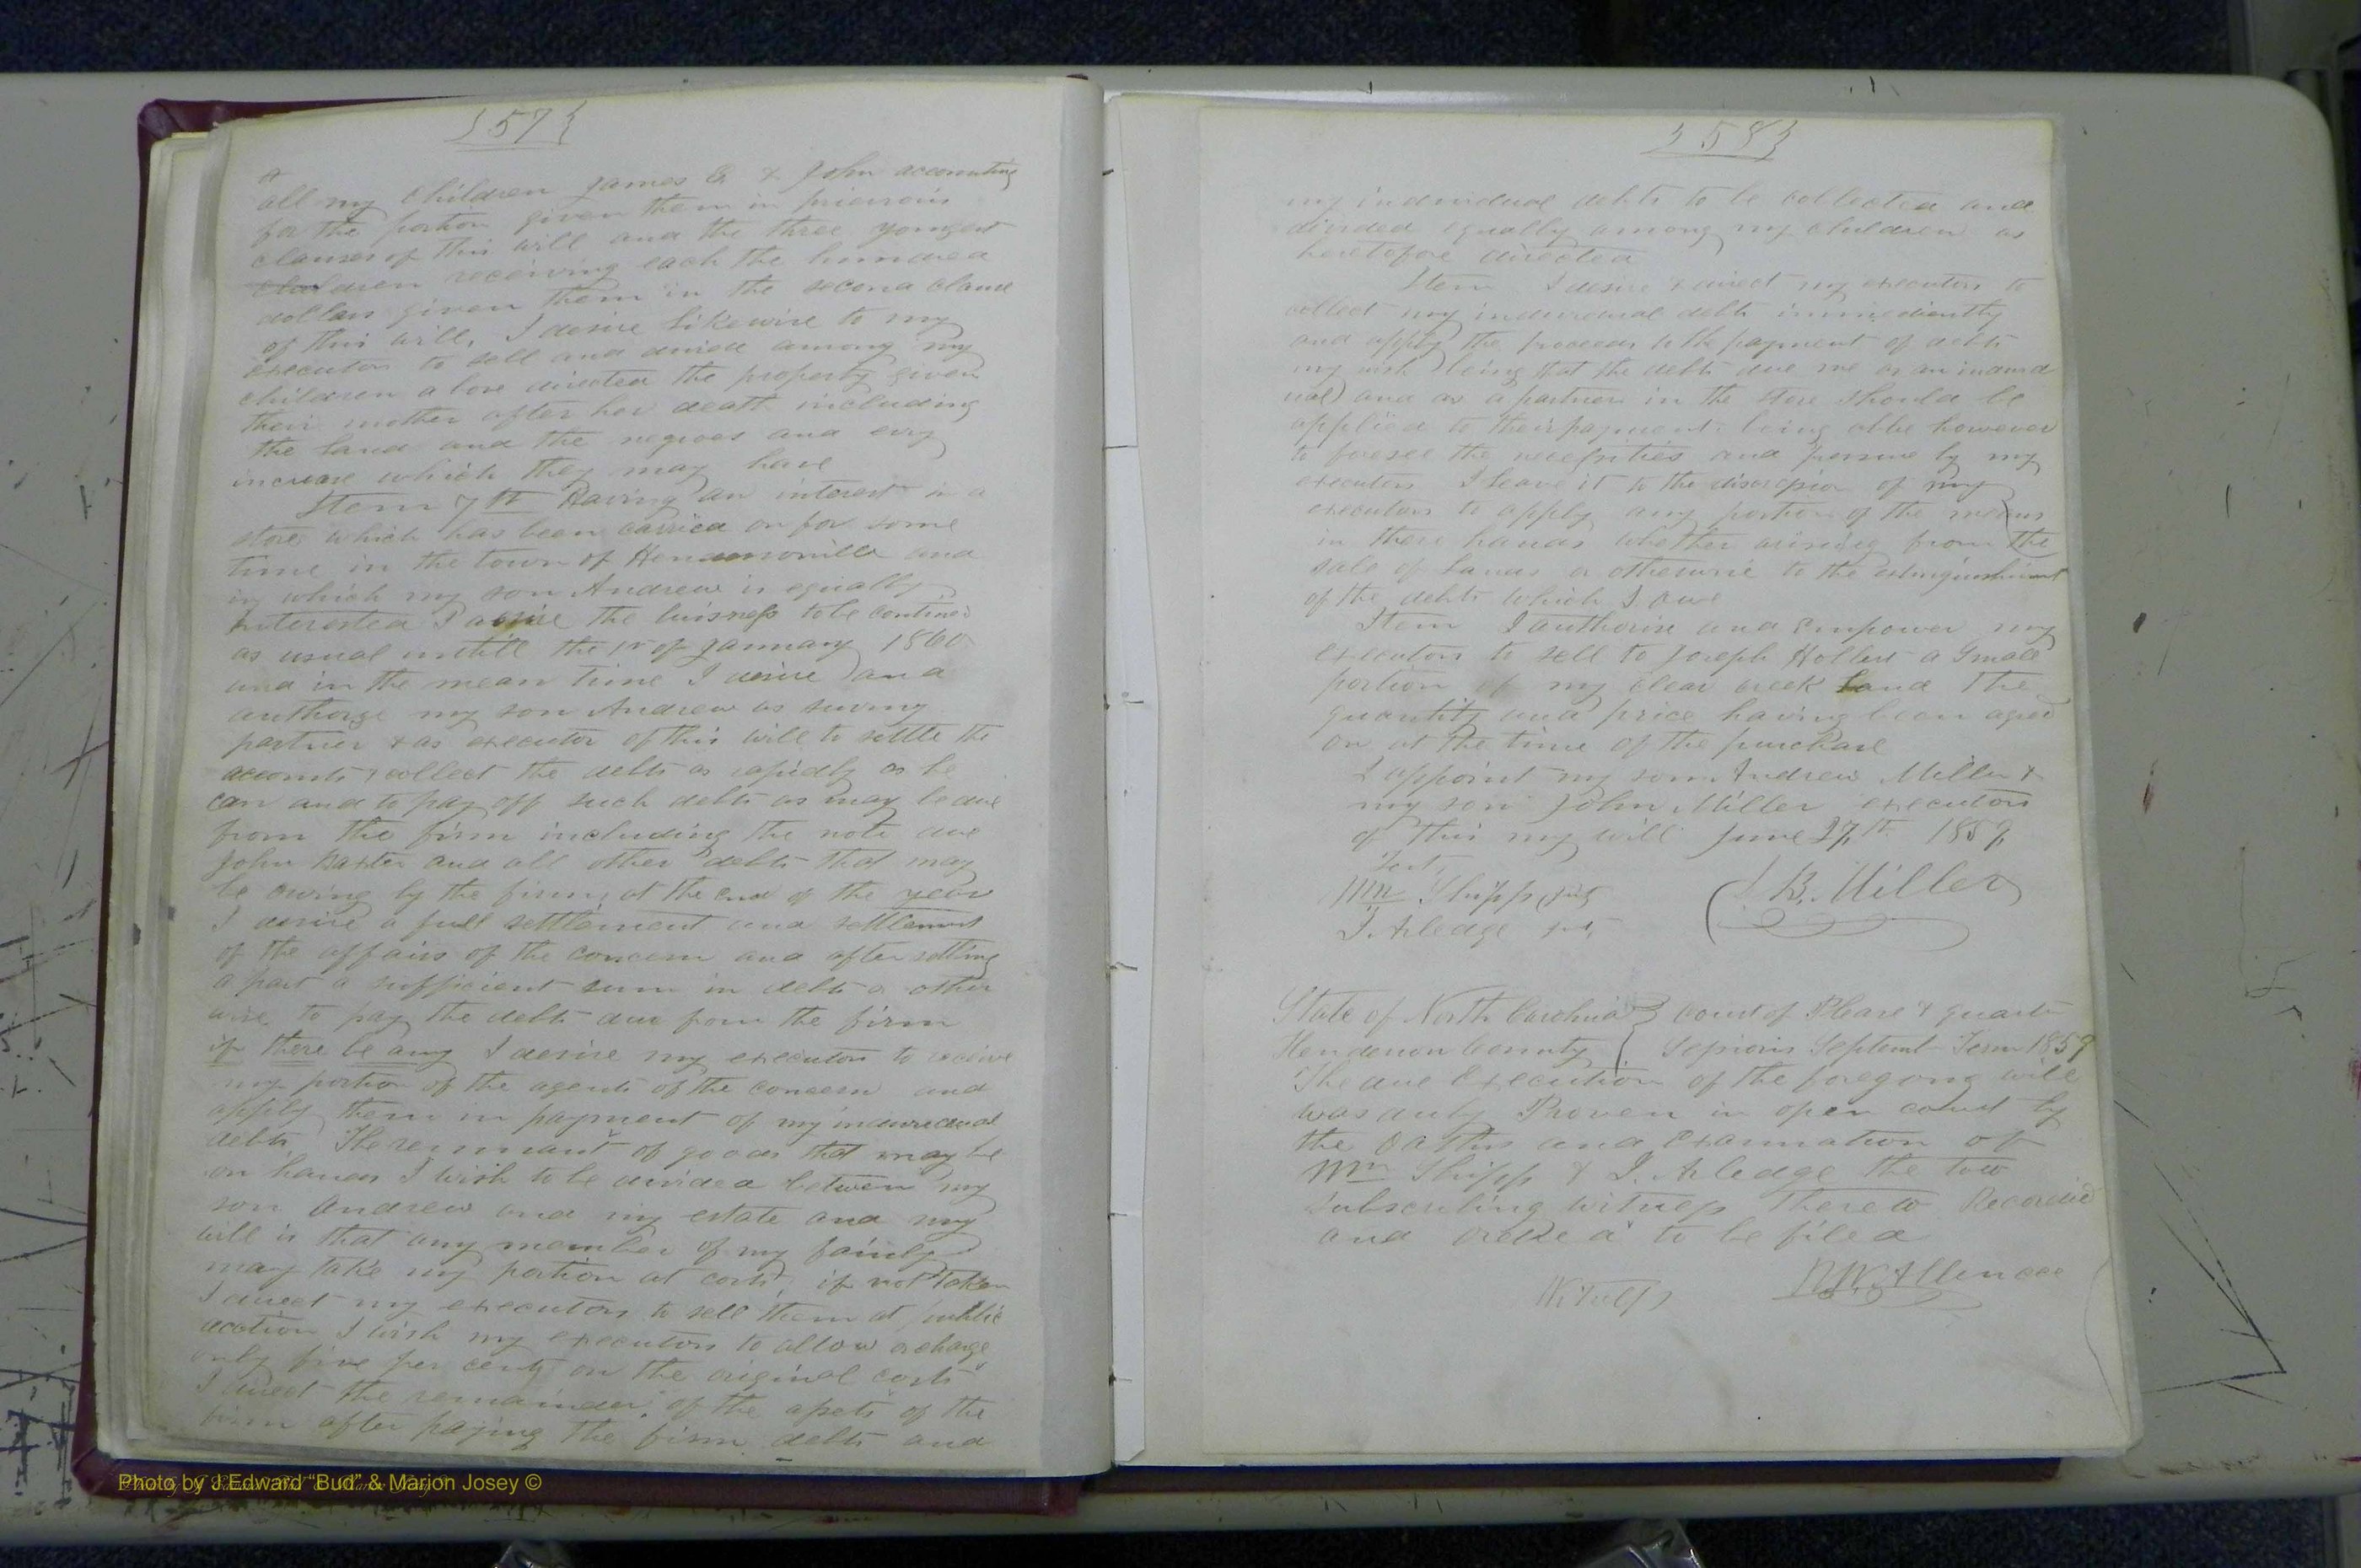 {57}
all my children James B & John accounting
for the portion given them in previous
clauses of this will and the three yongest
children receiving each the hundred
dollars given them in the second clause
of this will, I desire likewise to my
executors to sell and divide among my
children above directed the property given
their mother after her death including
the land and the negroes and any
increase which they may have
Item 7th Having an interest in a
store which has been carried on for some
time in the town of Hendersonville and
in which my son Andrew is equally
interested I desire the buisness to be continued
as usual untill the 1st of January 1860
and in the mean time I desire and
authorze my son Andrew as surving
partner & as executor of this will to settle the
accounts & collect the debts as rapidly as he
can and to pay off such debts as may be due
from the firm including the note due
John Baxter and all other debts that may
be owing by the firm, at the end of the year
I desire a full settlement and settlement
of the affairs of the concern and after setting
a part a sufficient sum in debts or other
wise to pay the debts due from the firm
if there be any I desire my executors to receive
my portion of the agents of the concern and
apply them in payment of my individual
debts. The remnant of goods that may be
on hands I wish to be divided between my
son Andrew and my estate and my
will is that any member of my family
may take my portion at costs, if not taken
I direct my executors to sell them at public
auction I wish my executors to allow a charge
only five per cent on the original costs
I direct the remainder of the assets of the
firm after paying the firm debts and
{58}
my individual debts to be collected and
divided equally among my children as
heretofore directed
Item I desire & direct my executors to
collect my individual debts immediently
and apply the proceeds to the payment of debts
my wish being that the debts due me as an individ
ual and as a partner in the store should be
applied to their payment. being able however
to foresee the necessities and by my
executors I leave it to the discresion of my
executors to apply any portion of the means
in there hands whether arising from the
sale of lands or otherwise to the extinguishment
of the debts which I owe
Item I authorise and empower my
executors to sell to Joseph Hollert a small
portion of my clear creek land The
quantity and price having been agred
on at the time of the purchase
I appoint my sons Andrew Miller &
my son John Miller executors
of this my will June 27th 1859,
Test,
Wm Shipp Jut
J. Arledge Jut, J B. Miller
State of North Carolina } Court of Pleas & quarter
Henderson County { Sessions Septemb Term 1859
The due Execution of the foregong will
was duly Proven in open court by
the Oaths and Examnation of
Wm Shipp & J. Arledge the tow
subscribing witness thereto Recorded
and orderd to be filed
Witness R. W. Allen CCC
Photo by J Edward “Bud” & Marion Josey ©